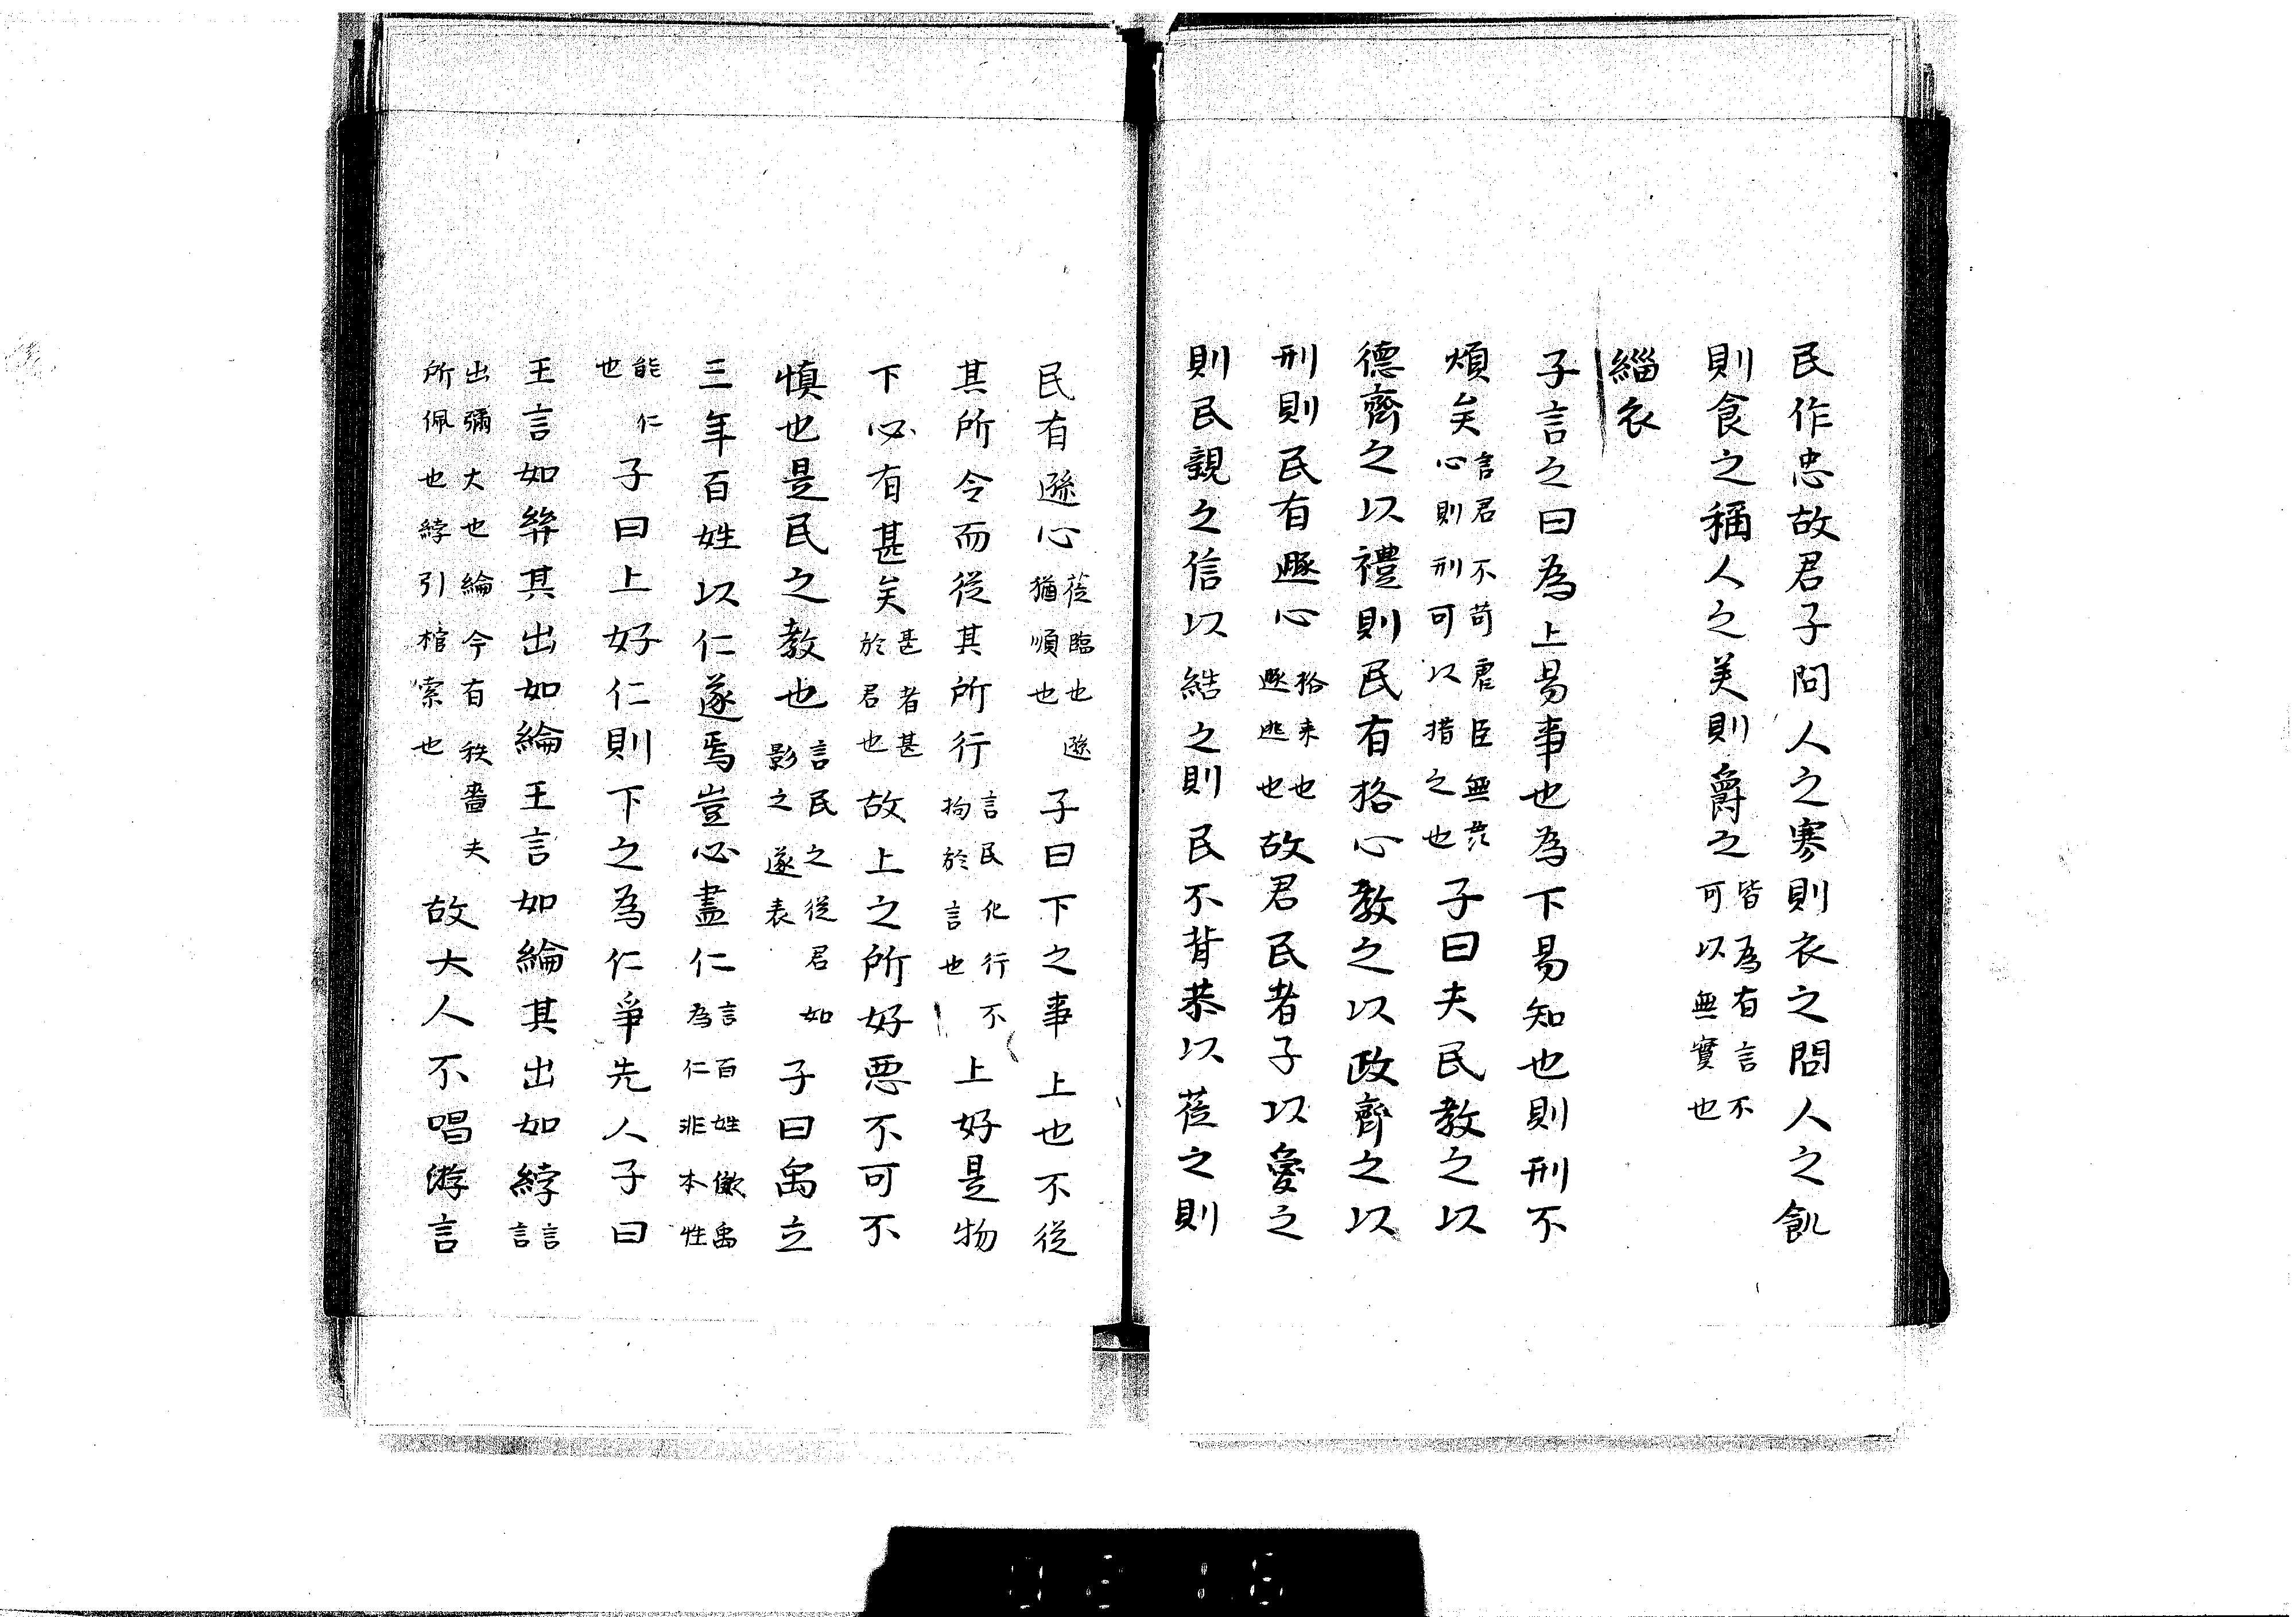 民作忠故君子問人之寒則衣之問人之飢
則食之稱人之美則爵之皆為有言不可以無實也
緇衣
子言之曰為上易事也為下易知也則刑不
煩矣言君不苛虐臣無心則刑可以措之也子曰夫民教之以
德齊之以禮則民有格心教之以政齊之以
刑則民有遯心格来也遯逃也故君民者子以愛之
則民親之信以結之則民不背恭以莅之則
民有遜心莅臨也遜猶順也子曰下之事上也不從
其所令而從其所行言民化行不拘於言也上好是物
下必有甚矣甚者甚於君也故上之所好惡不可不
慎也是民之教也言民之從君如影之遂表子曰禹立
三年百姓以仁遂焉豈必盡仁言百姓儌禹為仁非本性
能仁也子曰上好仁則下之為仁爭先人子曰
王言如絲其出如綸王言如綸其出如綍言言
出彌大也綸今有秩嗇夫所佩也綍引棺索也故大人不唱游言